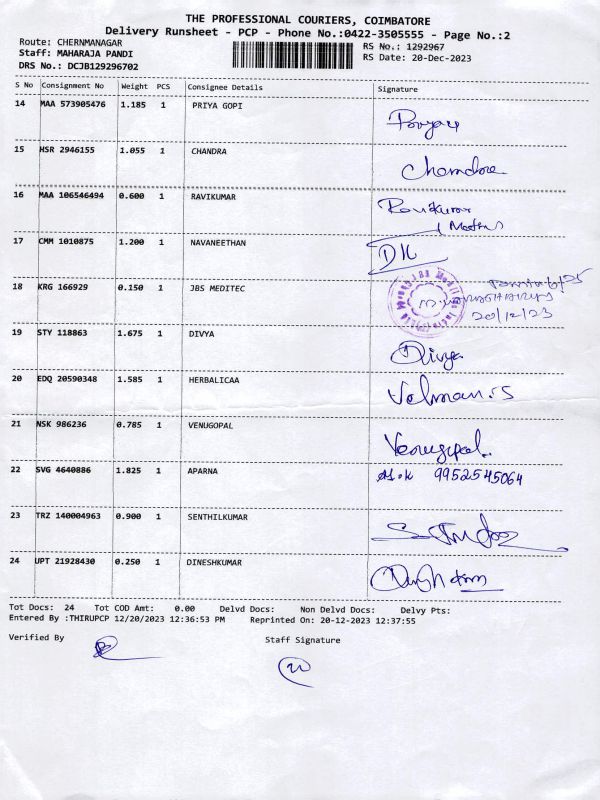 THE PROFESSIONAL COURIERS, COIMBATORE
Delivery Runsheet - PCP - Phone No.:0422-3505555 - Page No.:2
Route: CHERNMANAGAR
RS No.: 1292967
Staff: MAHARAJA PANDI
RS Date: 20-Dec-2023
DRS No.: DCJB129296702
S No Consignment No Weight PCS Consignee Details Signature
14 MAA 573905476 1.185 1 PRIYA GOPI
15 HSR 2946155 1.055 1 CHANDRA Chandra
16 MAA 106546494 0.600 1 RAVIKUMAR Ravikumar
17 CMM 1010875 1.200 1 NAVANEETHAN
18 KRG 166929 0.150 1 JBS MEDITEC
20/12/23
19 STY 118863 1.675 1 DIVYA Divya
20 EDQ 20590348 1.585 1 HERBALICAA
21 NSK 986236 0.785 1 VENUGOPAL Venugopal
22 SVG 4640886 1.825 1 APARNA 9952545064
23 TRZ 140004963 0.900 1 SENTHILKUMAR
24 UPT 21928430 0.250 1 DINESHKUMAR
Tot Docs: 24 Tot COD Amt: 0.00 Delvd Docs: Non Delvd Docs: Delvy Pts:
Entered By :THIRUPCP 12/20/2023 12:36:53 PM Reprinted On: 20-12-2023 12:37:55
Verified By Staff Signature